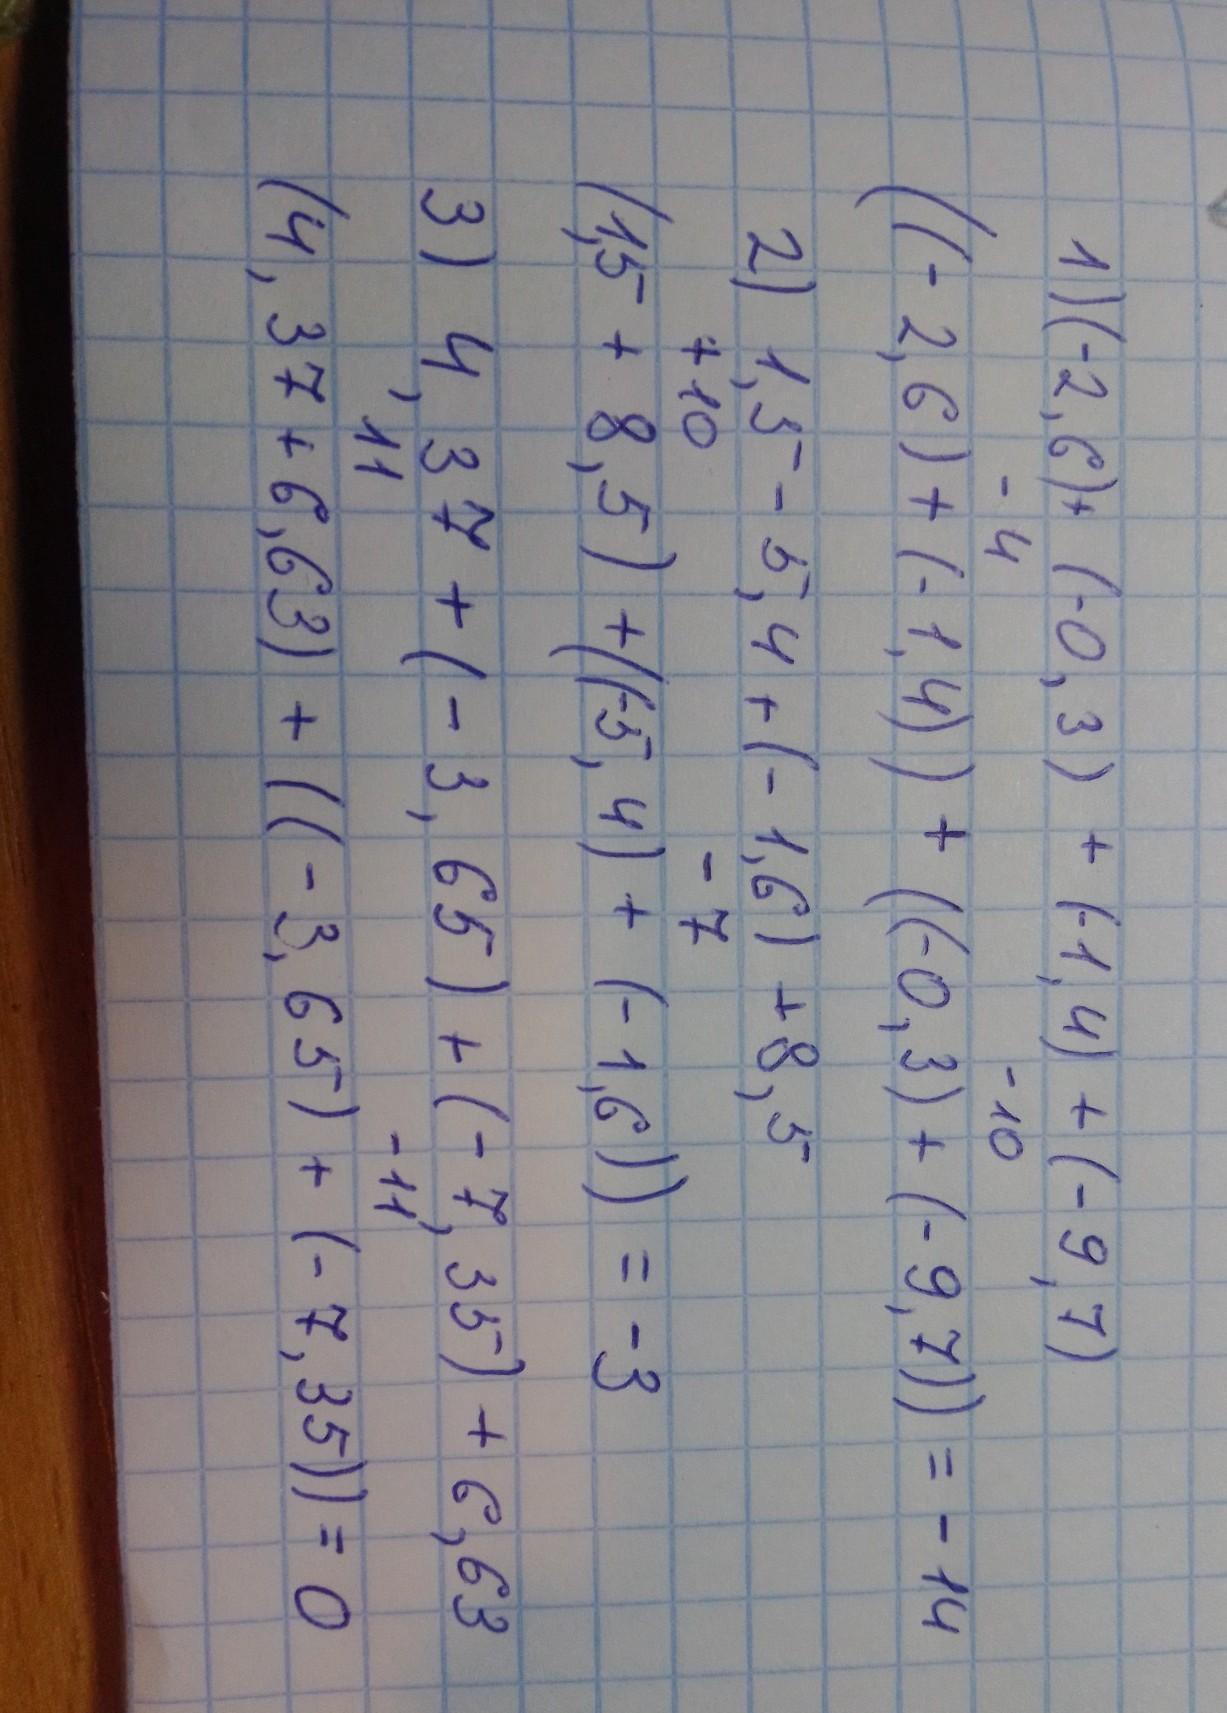 1) (-2,6) + (-0,3) + (-1,4) + (-9,7)
-4 -10
((-2,6) + (-1,4)) + ((-0,3) + (-9,7)) = -14
2) 1,5 - 5,4 + (-1,6) + 8,5
+10 -7
(1,5 + 8,5) + ((-5,4) + (-1,6)) = -3
3) 4,37 + (-3,65) + (-7,35) + 6,63
11 -11
(4,37 + 6,63) + ((-3,65) + (-7,35)) = 0